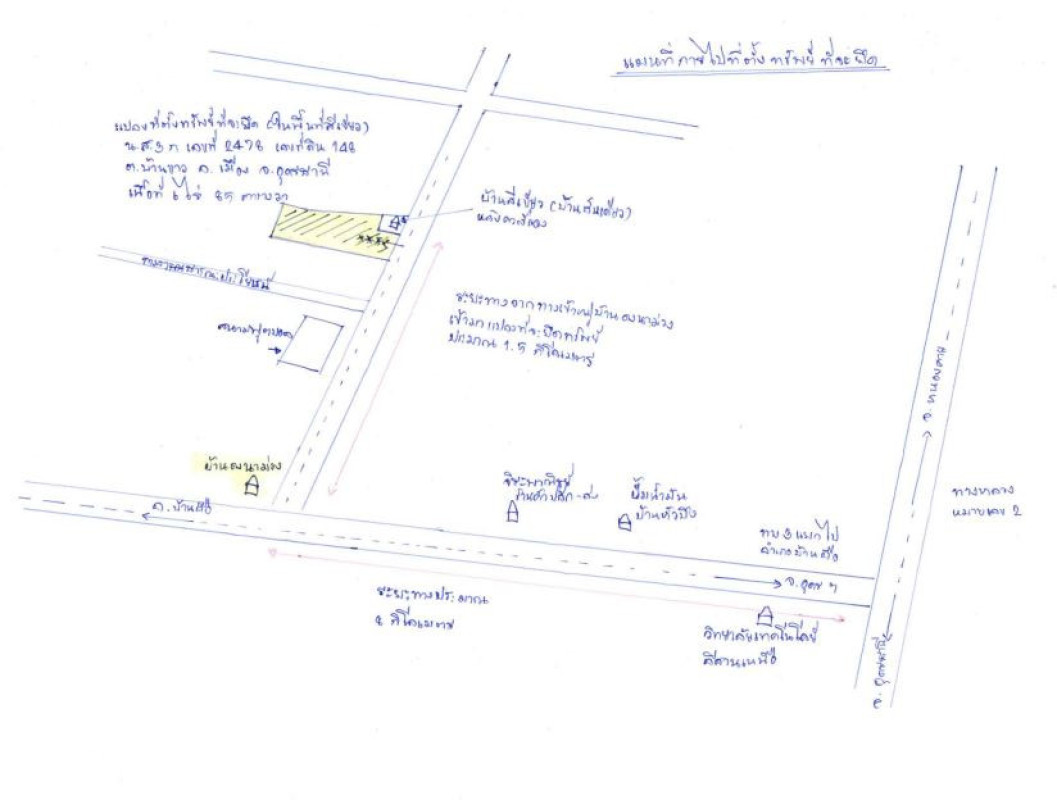 แผนที่ภายไปที่ตั้งทรัพย์ที่จะยึด
แปลงที่ตั้งทรัพย์ที่จะยึด (ในพื้นที่สีเขียว)
น.ส.3 ก เลขที่ 2478 เลขที่ดิน 148
ต.บ้านขาว อ.เมือง จ.อุดรธานี
เนื้อที่ 6 ไร่ 85 ตารางวา
บ้านสีเขียว (บ้านชั้นเดียว)
ทางสาธารณประโยชน์
ระยะทางจากทางเข้าหมู่บ้านดงนาม่วง
เข้ามาแปลงที่จะยึดทรัพย์
ประมาณ 1.5 กิโลเมตร
สนามฟุตบอล
จ.หนองคาย
บ้านดงนาม่วง
ร้านค้าปลีก-ส่ง
ปั๊มน้ำมัน
บ้านหัวบึง
ทางหลวง
หมายเลข 2
อ.บ้านผือ
ทาง 3 แยกไป
อำเภอบ้านผือ
จ.อุดร ฯ
ระยะทางประมาณ
กิโลเมตร
วิทยาลัยเทคโนโลยี
อีสานเหนือ
จ.อุดรธานี